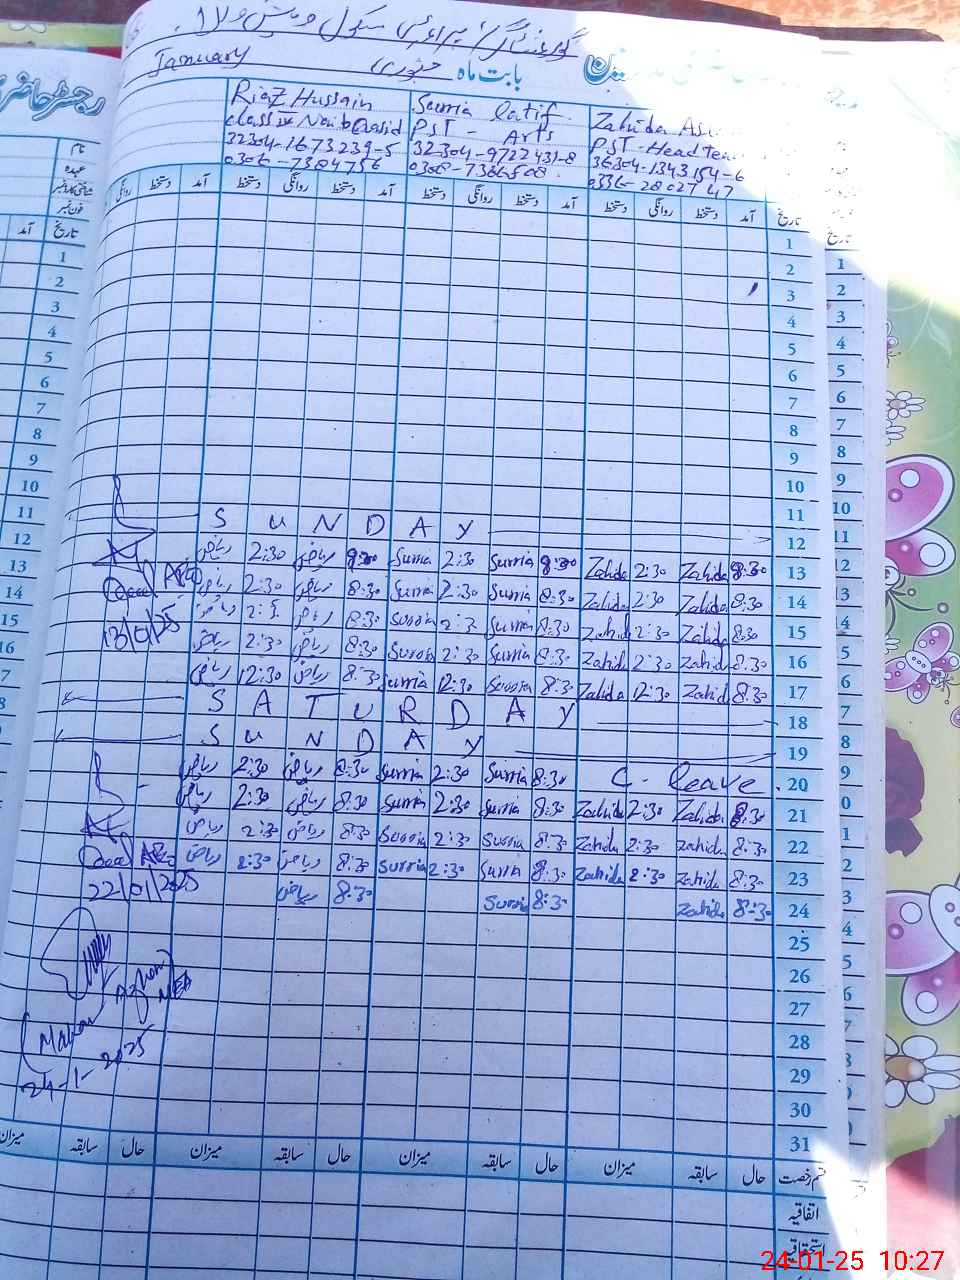 گورنمنٹ گرلز پرائمری سکول
January جنوری بابت ماہ
رجسٹر حاضری
Riaz Hussain
class IV Naib Qasid
32304-1673239-5
0306-7384756
Surria Latif
PST - Arts
32304-9722431-8
0308-7366508
Zahida
PST-Head
36304-1343154-6
0336-2802747
نام
عہدہ
فون نمبر
تاریخ
آمد
روانگی دستخط آمد دستخط روانگی دستخط آمد دستخط روانگی دستخط آمد دستخط روانگی دستخط آمد تاریخ
1
2
3
4
5
6
7
8
9
10
11
SUNDAY 12
ریاض 2:30 ریاض 8:30 Surria 2:30 Surria 8:30 Zahida 2:30 Zahida 8:30 13
ریاض 2:30 ریاض 8:30 Surria 2:30 Surria 8:30 Zahida 2:30 Zahida 8:30 14
ریاض ریاض 8:30 Surria 2:3 Surria 8:30 Zahida 2:30 Zahida 8:30 15
ریاض 2:30 ریاض 8:30 Surria 2:30 Surria 8:30 Zahida 2:30 Zahida 8:30 16
ریاض 12:30 ریاض 8:30 Surria 12:30 Surria 8:30 Zahida 12:30 Zahida 8:30 17
13/01/25
SATURDAY 18
SUNDAY 19
ریاض 2:30 ریاض 8:30 Surria 2:30 Surria 8:30 C. leave. 20
ریاض 2:30 ریاض 8:30 Surria 2:30 Surria 8:30 Zahida 2:30 Zahida 8:30 21
ریاض 2:30 ریاض 8:30 Surria 2:30 Surria 8:30 Zahida 2:30 Zahida 8:30 22
ریاض 2:30 ریاض 8:30 Surria 2:30 Surria 8:30 Zahida 2:30 Zahida 8:30 23
22/01/2025
ریاض 8:30 Surria 8:30 Zahida 8:30 24
25
26
27
28
29
30
31
Azhar
MEA
24-1-2025
میزان سابقہ حال میزان سابقہ حال میزان سابقہ حال میزان سابقہ حال قسم رخصت
اتفاقیہ
استحقاقیہ
24-01-25 10:27